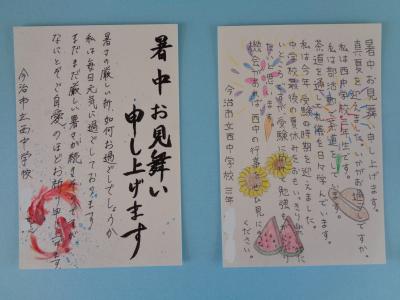 暑中お見舞い
申し上げます
暑さの厳しい折、如何お過ごしでしょうか
私は毎日元気に過ごしております
まだまだ厳しい暑さが続きますが
なにとぞご自愛のほどお祈り申し上げます
今治市立西中学校
暑中お見舞い申し上げます。
真夏を迎えましたが、いかがお過ごしですか。
私は西中学校三年生です。
私は部活動で茶道をしています。
茶道を通して礼儀を日々学んでいます。
私は今年、受験の時期を迎えました。
中学校最後の夏休みをおもいっきり
機会があれば、西中の行事を見に
ください。
今治市立西中学校 三年